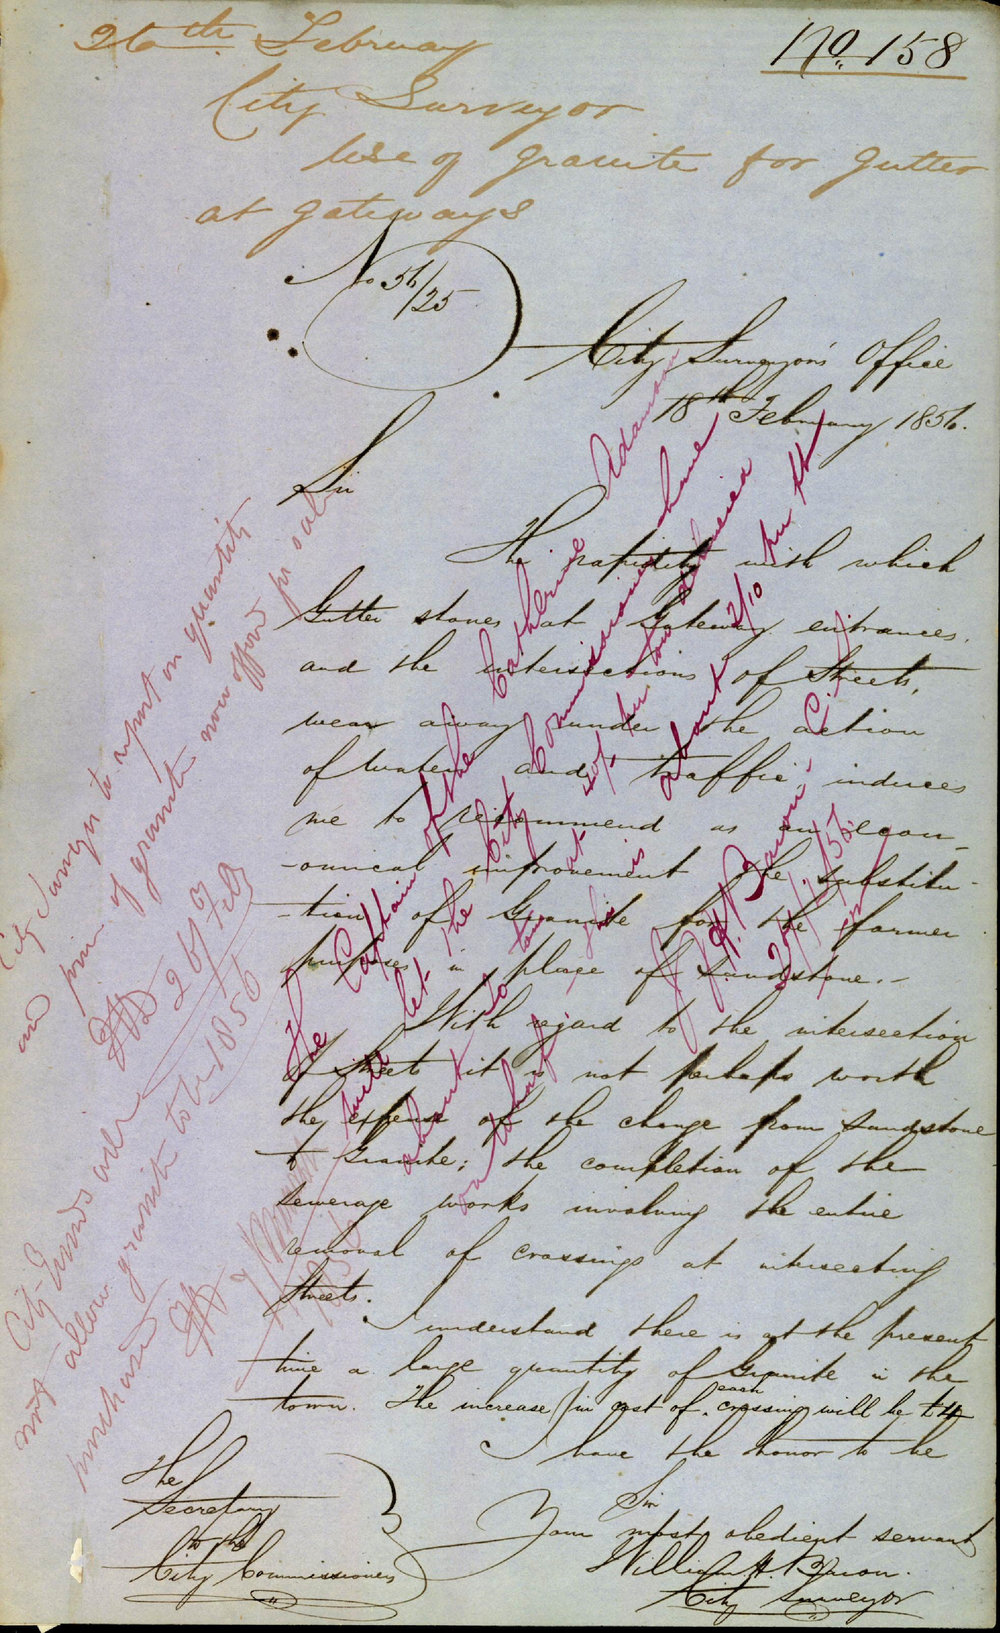 No. 158
26th February
City Surveyor
Use of granite for gutter
at gateways
No 56/25
City Surveyor's Office
18th February 1856.
Sir
The rapidity with which
Gutter stones at Gateway entrances,
and the intersections of Streets,
wear away under the action
of Water and traffic induces
me to recommend as an econ-
-omical improvement the substitu-
-tion of Granite for the former
purposes in place of Sandstone.-
With regard to the intersection
of Streets it is not perhaps worth
the expense of the change from Sandstone
to Granite; the completion of the
sewerage works involving the entire
removal of crossings at intersecting
Streets.
I understand there is at the present
time a large quantity of Granite in the
town. The increase in cost of each crossing will be £4
I have the honor to be
Sir
Your most obedient servant
William H. Bryson.
City Surveyor
The
Secretary
to the
City Commissioners
The Captain of the Catherine Adamson
will let the City Commissioners have
about 70 tons at 40/- per ton delivered
on wharf, this is about 2/10 per ft
City Surveyor to report on quantity
and price of granite now offered for sale
26/ Feb
1856
City Funds will
not allow granite to be
purchased